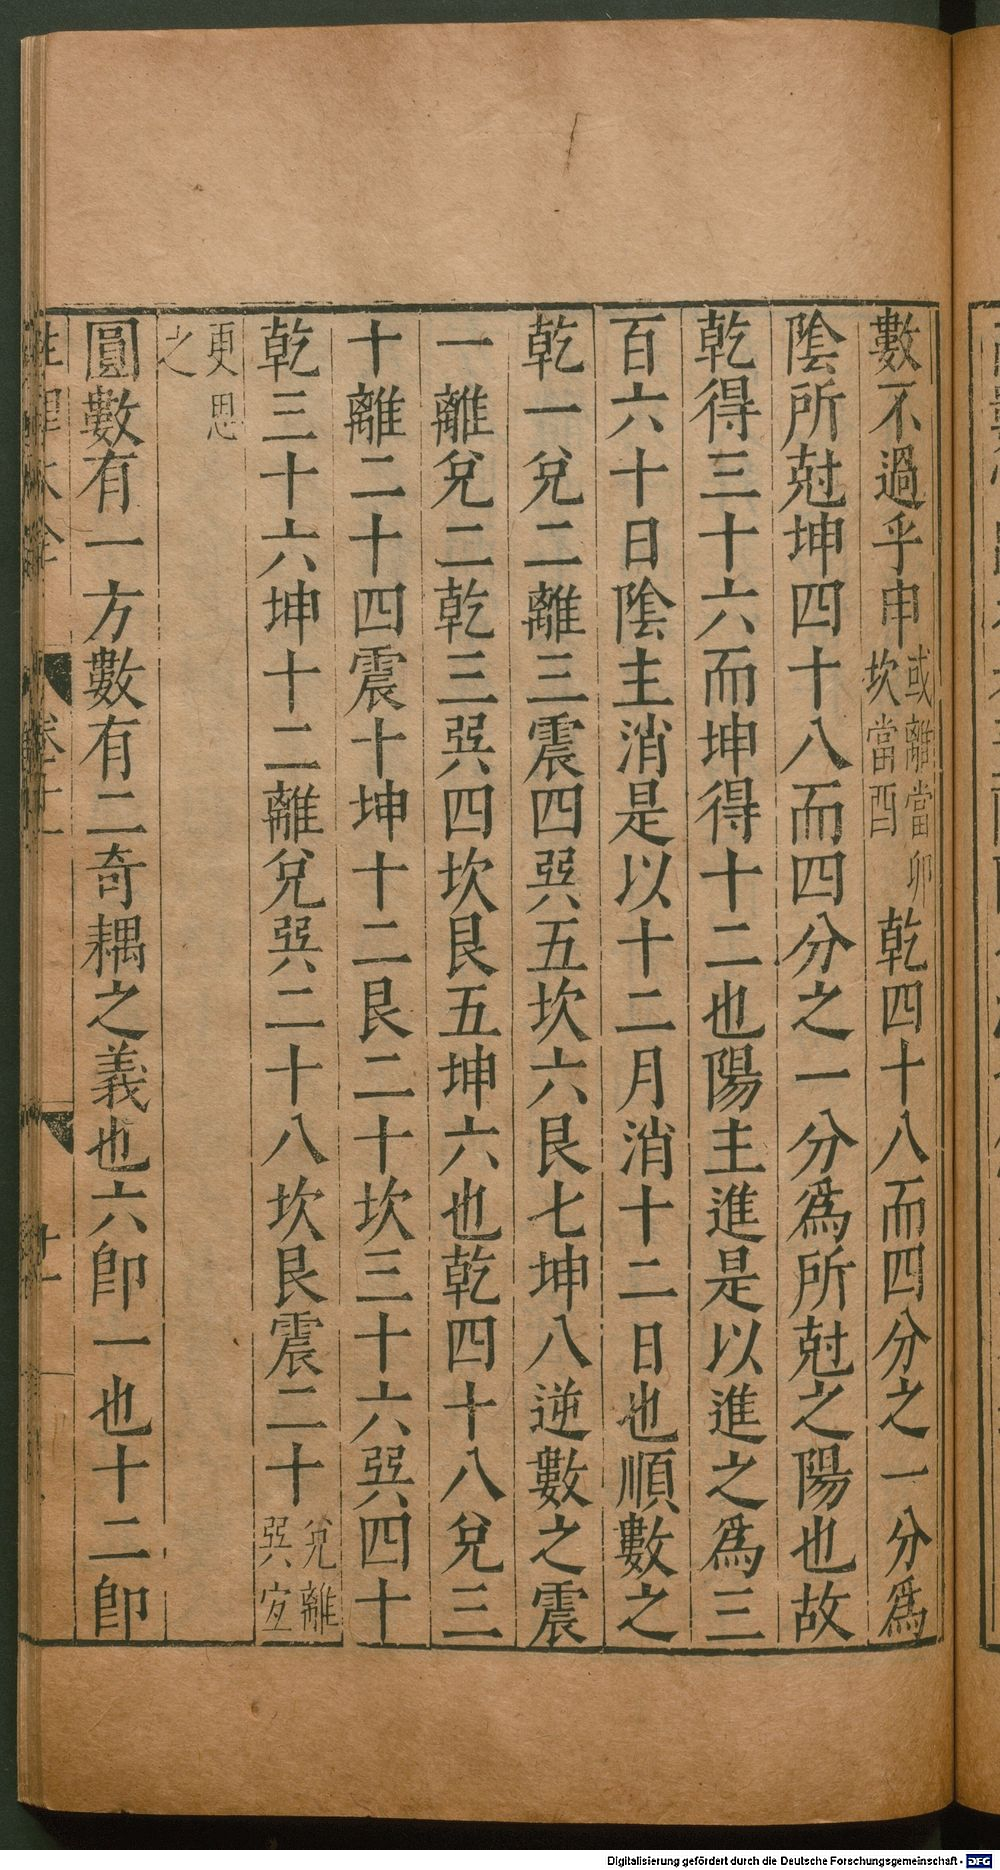 數不過乎申或離當卯坎當酉乾四十八而四分之一分爲
陰所尅坤四十八而四分之一分爲所尅之陽也故
乾得三十六而坤得十二也陽主進是以進之爲三
百六十日陰主消是以十二月消十二日也順數之
乾一兌二離三震四巽五坎六艮七坤八逆數之震
一離兌二乾三巽四坎艮五坤六也乾四十八兌三
十離二十四震十坤十二艮二十坎三十六巽四十
乾三十六坤十二離兌巽二十八坎艮震二十兌離巽宜
更思之
圓數有一方數有二奇耦之義也六卽一也十二卽
性理大全
Digitalisierung gefördert durch die Deutsche Forschungsgemeinschaft - DFG